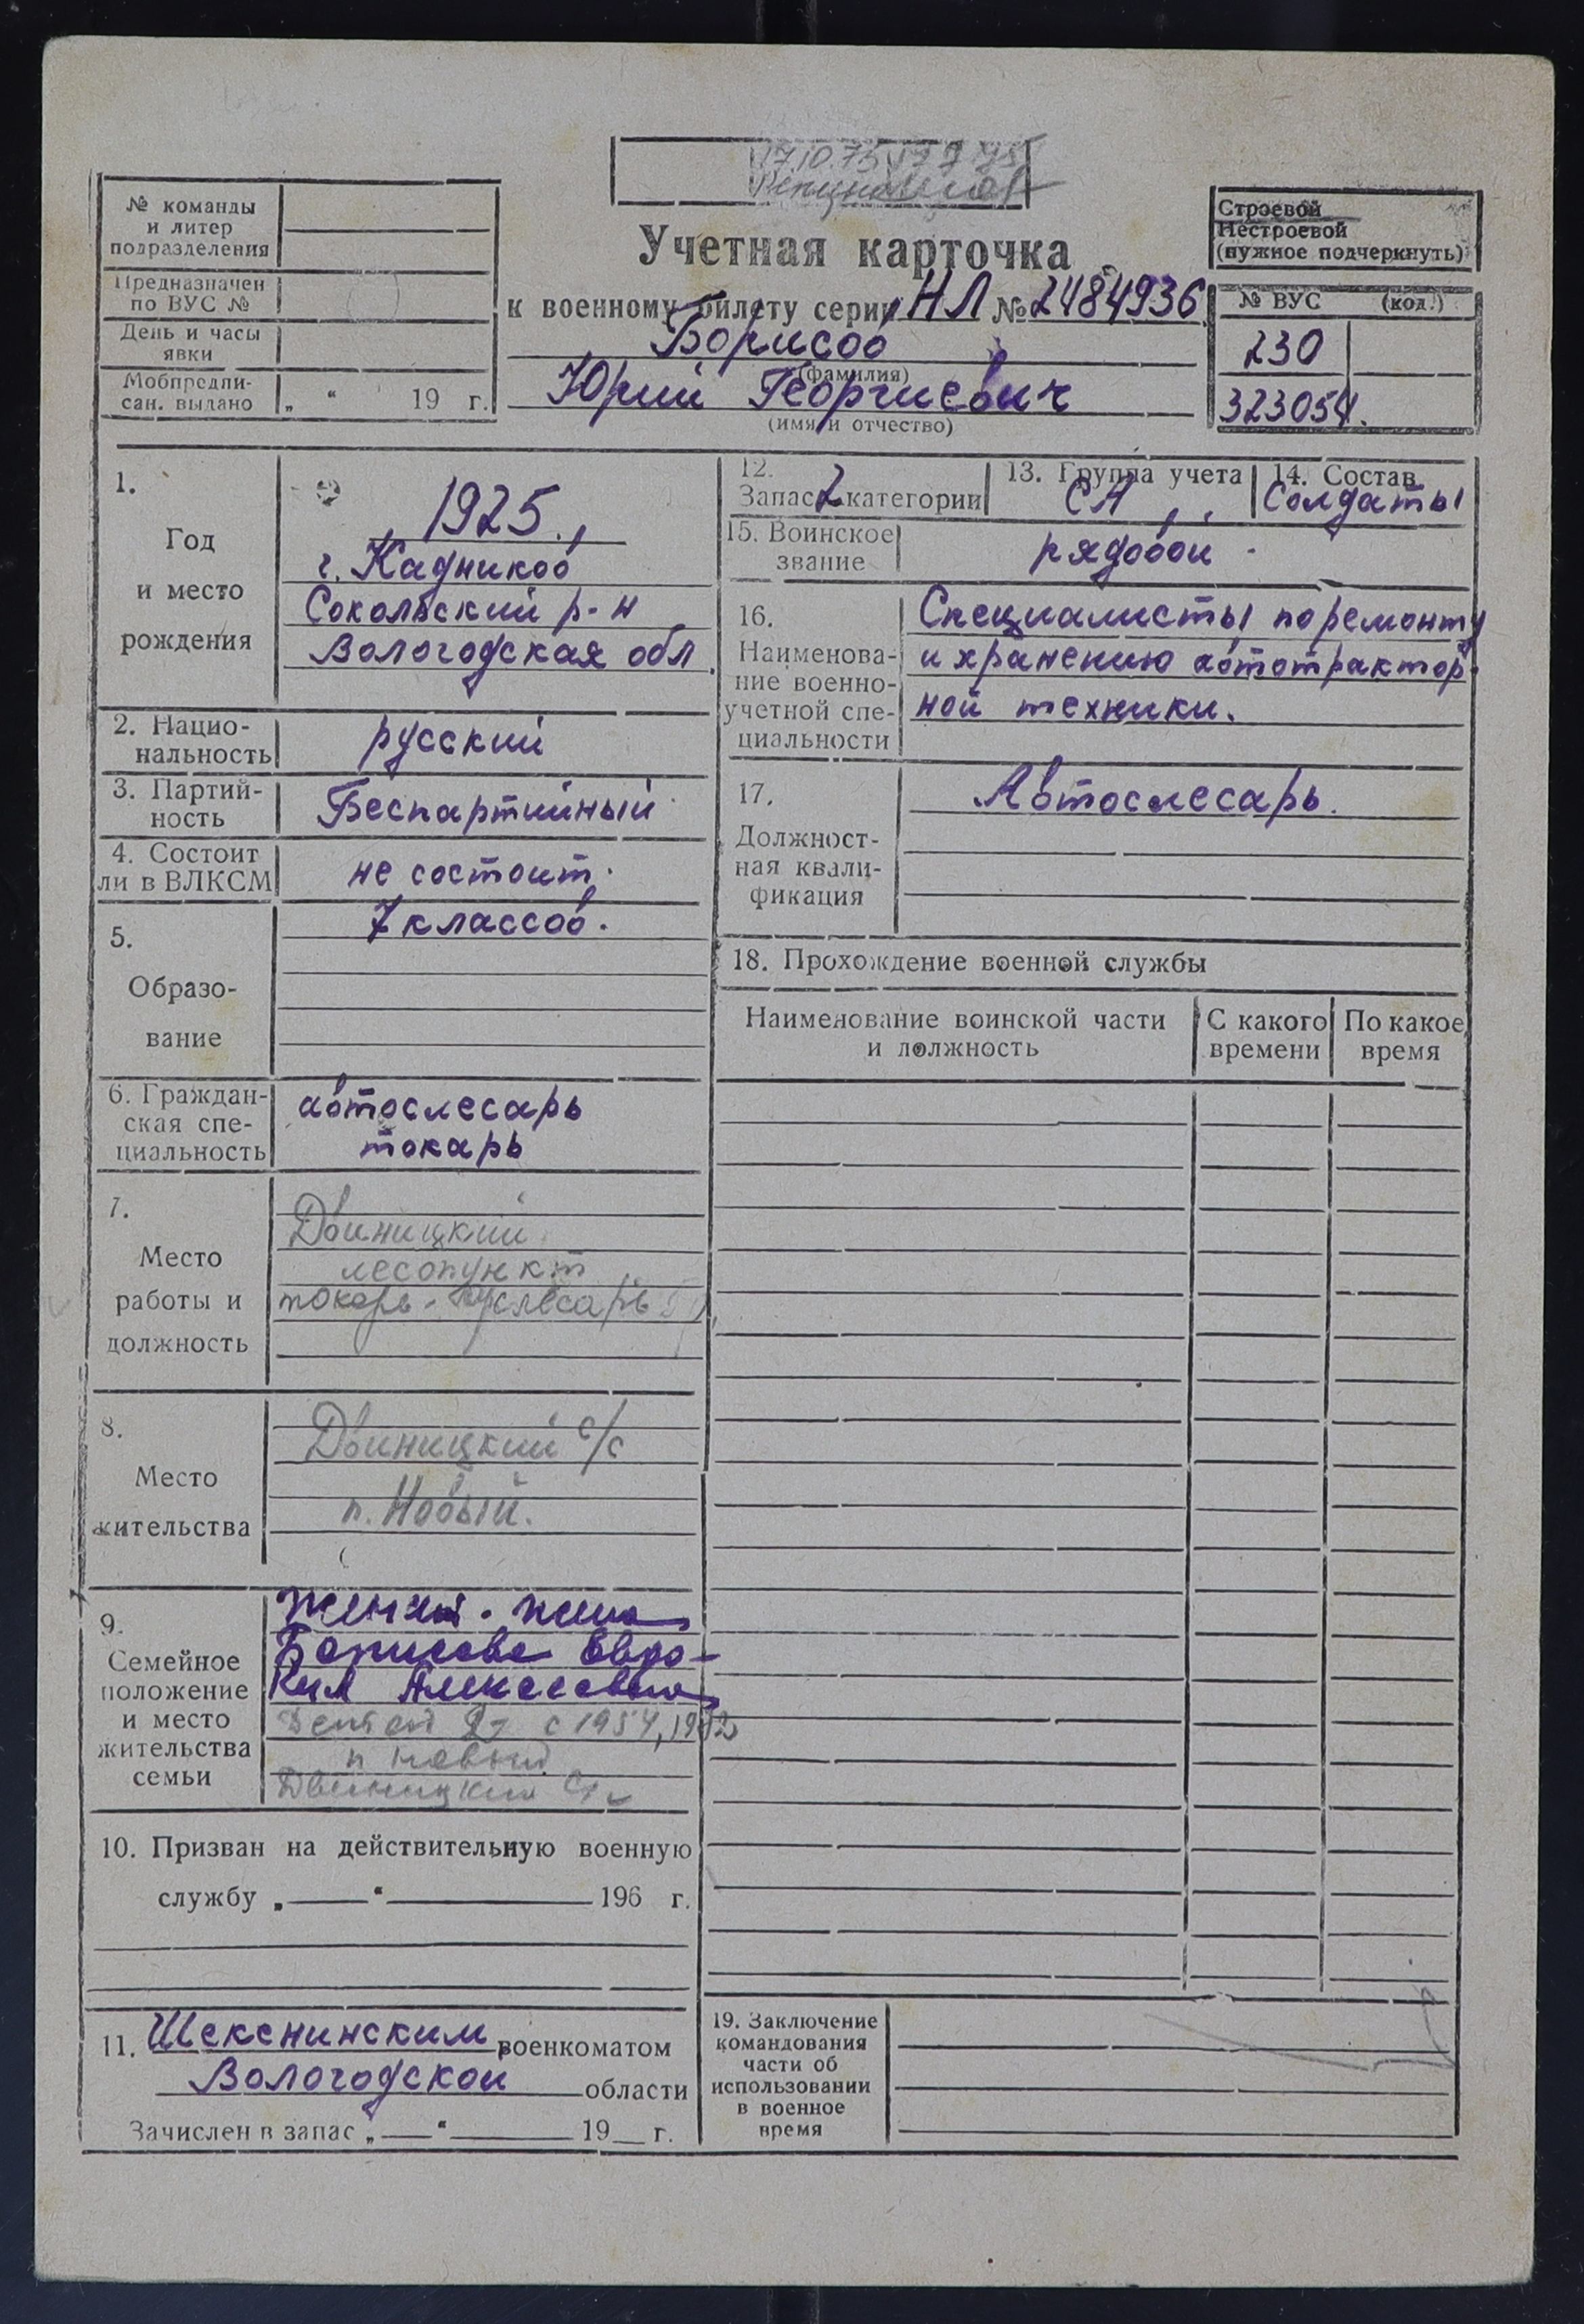 17.10.75
№ команды
и литер
подразделения
Предназначен
по ВУС №
День и часы
явки
Мобпредпи-
сан. выдано „ “ 19 г.
Учетная карточка
к военному билету серии НЛ № 2484936
Борисов
(фамилия)
Юрий Георгиевич
(имя и отчество)
Строевой
Нестроевой
(нужное подчеркнуть)
№ ВУС (код.)
230
323054.
1.
Год
и место
рождения
1925.
г. Кадников
Сокольский р-н
Вологодская обл.
2. Нацио-
нальность
русский
3. Партий-
ность
Беспартийный
4. Состоит
ли в ВЛКСМ
не состоит.
5.
Образо-
вание
7 классов.
6. Граждан-
ская спе-
циальность
автослесарь
токарь
7.
Место
работы и
должность
Двиницкий
лесопункт
токарь - слесарь
8.
Место
жительства
Двиницкий с/с
п. Новый.
9.
Семейное
положение
и место
жительства
семьи
Женат. жена
Борисова Евдо-
кия Алексеевна
Детей 2 с 1954, 1952
п Новый
Двиницкий с/с
10. Призван на действительную военную
службу „ “ 196 г.
11. Шекснинским военкоматом
Вологодской области
Зачислен в запас „ “ 19 г.
12.
Запас 2 категории
13. Группа учета
СА
14. Состав
Солдаты
15. Воинское
звание
рядовой
16.
Наименова-
ние военно-
учетной спе-
циальности
Специалисты по ремонту
и хранению автотрактор-
ной техники.
17.
Должност-
ная квали-
фикация
Автослесарь.
18. Прохождение военной службы
Наименование воинской части
и должность
С какого
времени
По какое
время
19. Заключение
командования
части об
использовании
в военное
время